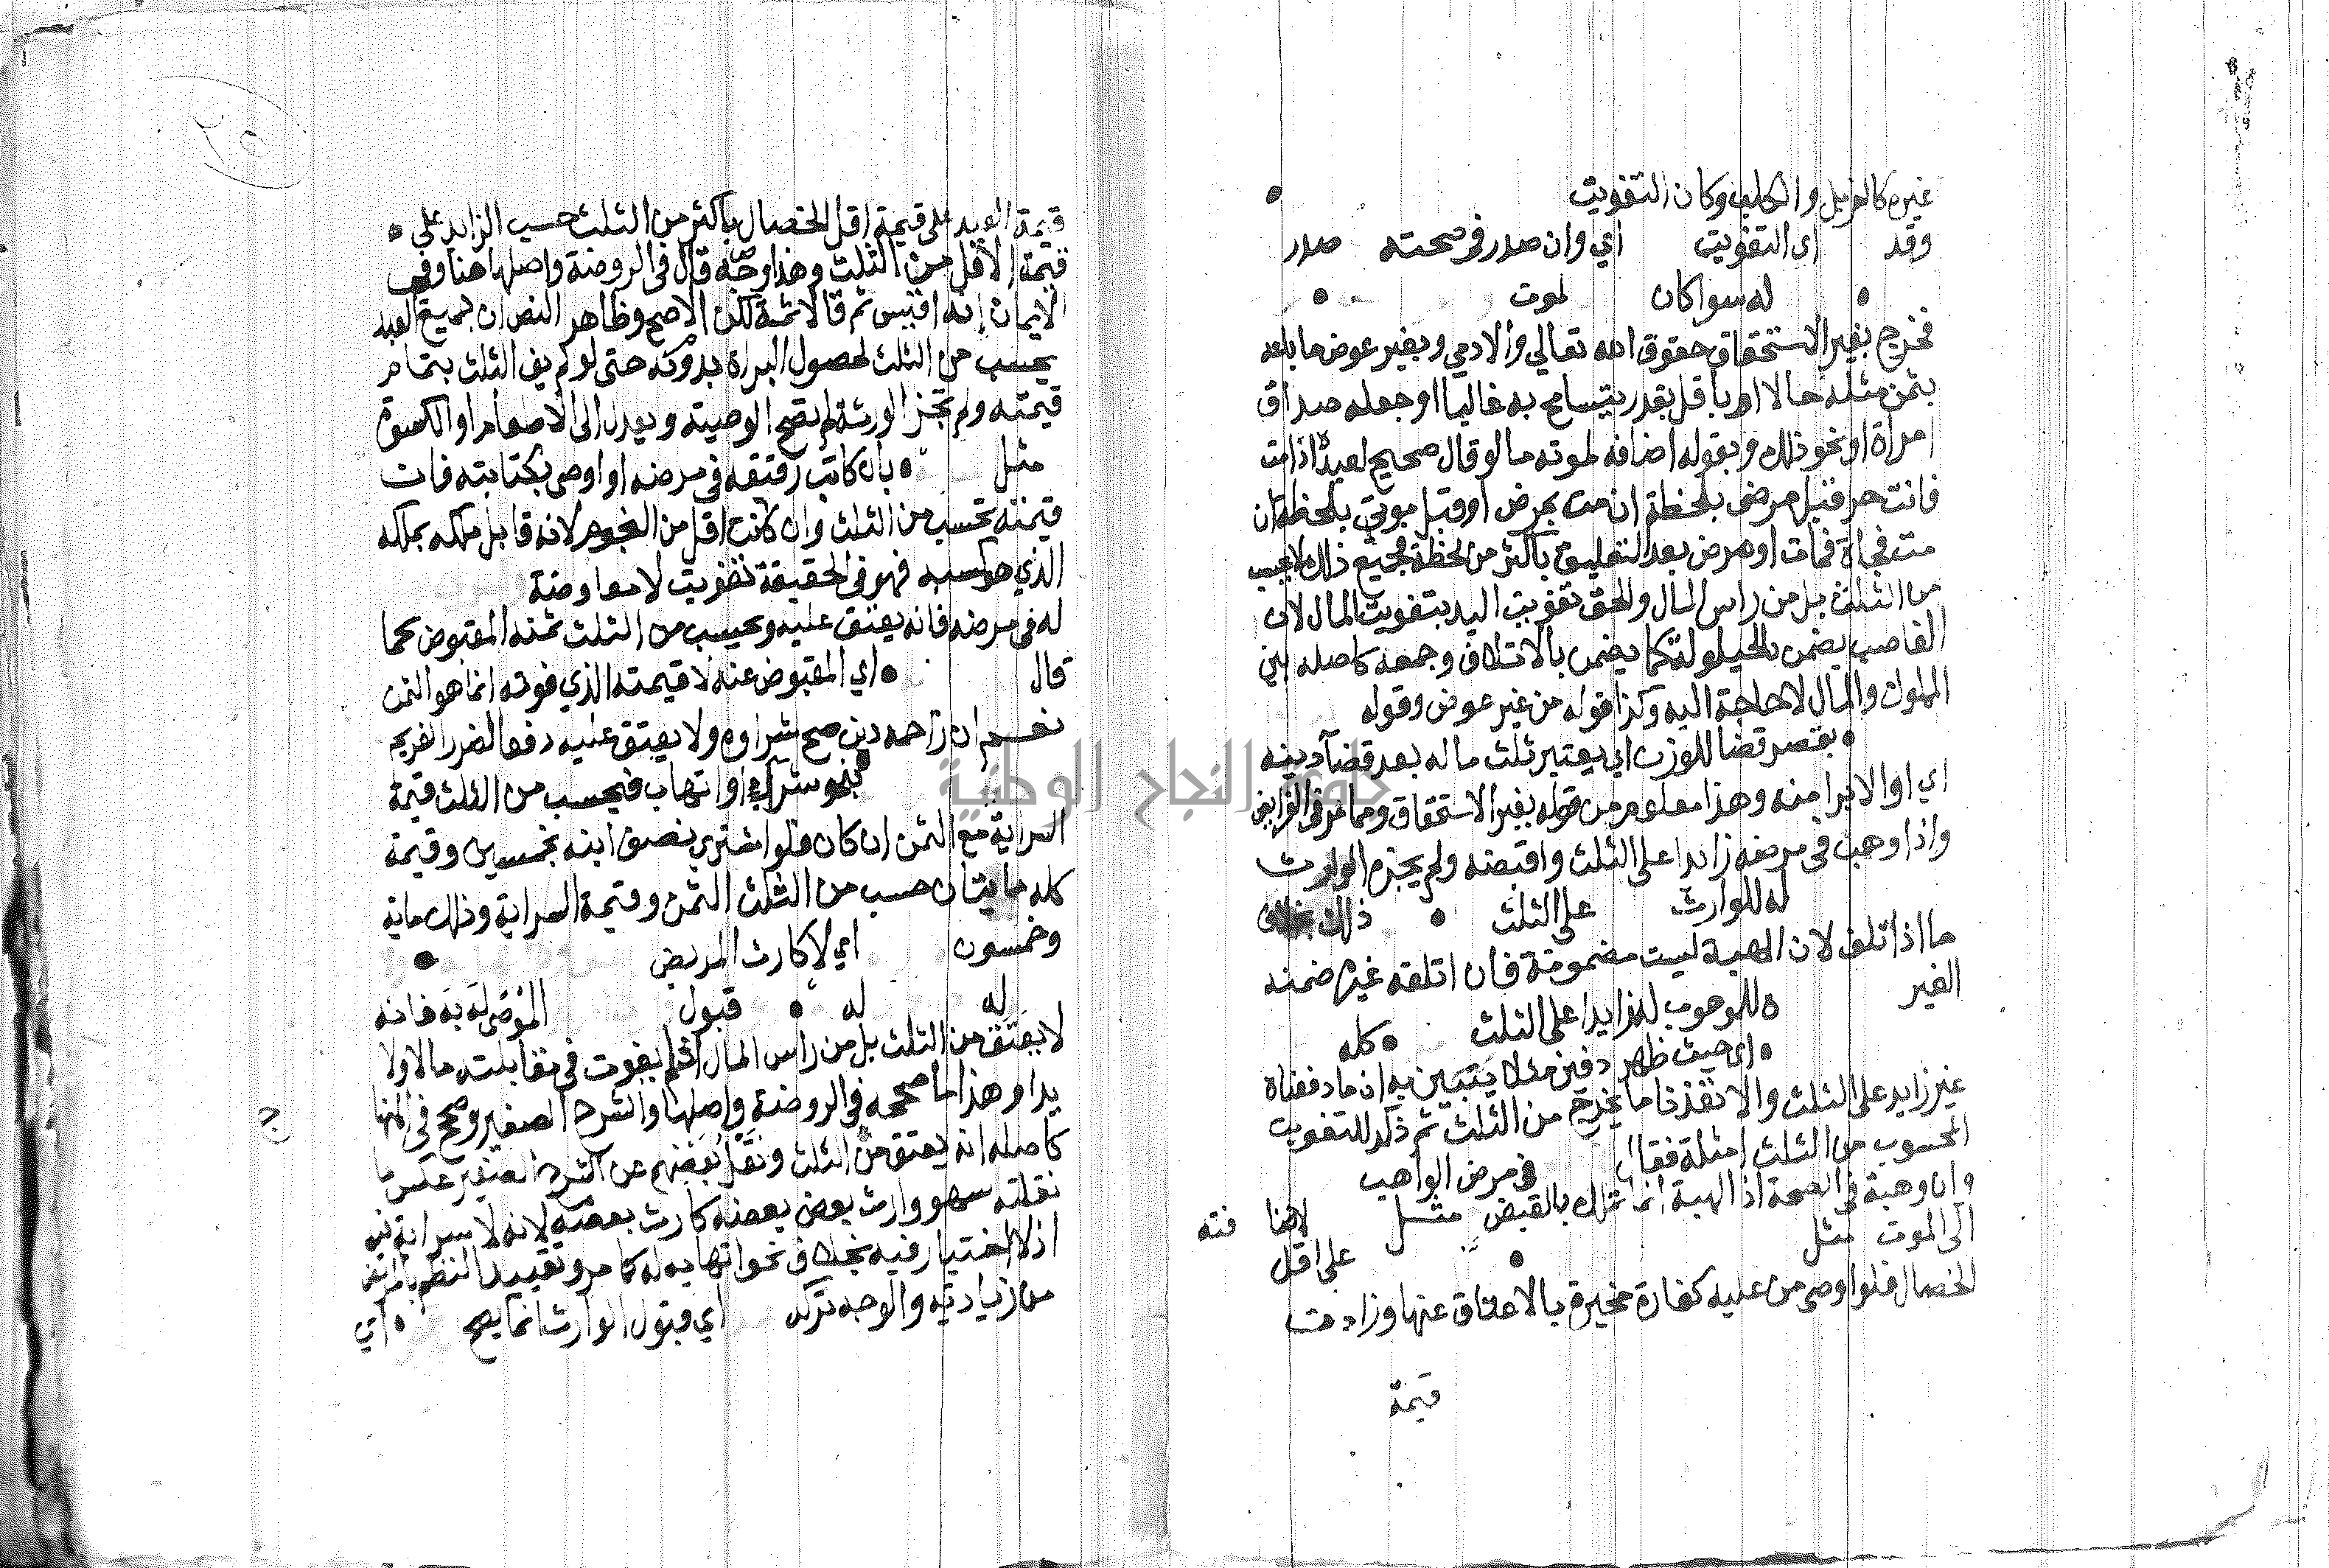 غيره كالزبل والكلب وكان التفويت
وقد اى التفويت اي وان صدر فى صحته صدر
له سواكان لموت
فخرج بغير الاستحقاق حقوق الله تعالي والادمي وبغير عوض ما باعه
بثمن مثله حالا او باقل بقدر يتسامح به غالبا اوجعله صداق
امراة او نحو ذلك وبقوله اضافه لموته ما لو قال صحيح لعبده اذا مت
فانت حر قبل مرضى بلحظة ان مت بمرض او قبل موتي بلحظة ان
مت فجاة فمات او مرض بعد التعليق باكثر من لحظة فجميع ذلك لا يحسب
من الثلث بل من راس المال والحق تفويت اليد بتفويت المال لان
الغاصب يضمن بالحيلولة كما يضمن بالاتلاف وجمعه كاصله بين
المملوك والمال لا حاجة اليه وكذا قوله من غير عوض وقوله
بقصر قضا للوزن اي يعتبر ثلث ماله بعد قضآ دينه
اي او الابرا منه وهذا معلوم من قوله بغير الاستحقاق ومما مر فى الفرايض
واذا وهب فى مرضه زايدا على الثلث واقبضه ولم يجزه الوارث
له للوارث على الثلث ذلك بخلاف
ما اذا تلف لان الهبة ليست مضمونة فان اتلفه غيره ضمنه
الغير ه للموهوب له زايدا على الثلث كله
اى حيث ظهر دفين مثلا يتبين به ان ما دفعناه
غير زايد على الثلث والا نفذنا ما يخرج من الثلث ثم ذكر للتفويت
المحسوب من الثلث امثلة فقال فى مرض الواهب
وان وهبة فى الصحة اذ الهبة انما تملك بالقبض مثل لاهنا فته
الى الموت مثل على اقل
الخصال فلو اوصى من عليه كفارة مخيرة بالاعتاق عنها وزادت
قيمة
٢٥
قيمة العبد على قيمة اقل الخصال باكثر من الثلث حسب الزايد على
قيمة الاقل من الثلث وهذا وجه قال فى الروضة واصلها هنا وفى
الايمان انه اقيس ثم قالا ثمة لكن الاصح وظاهر النص ان جميع العبد
يحسب من الثلث لحصول البراة بدونه حتى لو لم يف الثلث بتمام
قيمته ولم تجز الورثة لم تصح الوصية ويعدل الى الاطعام او الكسوة
مثل بان كاتب رقيقه فى مرضه او اوصى بكتابته فان
قيمته تحسب من الثلث وان كانت اقل من النجوم لانه قابل ملكه بملكه
الذي هو كسبه فهو فى الحقيقة تفويت لا معاوضة
له فى مرضه فانه يعتق عليه ويحسب من الثلث ثمنه المقبوض كما
قال اي المقبوض عنه لا قيمته الذي فوته انما هو الثمن
نعم ان زاحمه دين صح شراوه ولا يعتق عليه دفعا لضرر الغريم
بنحو شراء او اتهاب فيحسب من الثلث قيمة
السراية مع الثمن ان كان فلو اشترى نصف ابنه بخمسين وقيمة
كله مايتان حسب من الثلث الثمن وقيمة السراية وذلك ماية
وخمسون اي لا كارث المريض
له له قبول الموصى له به فانه
لا يعتق من الثلث بل من راس المال اذ لم يفوت فى مقابلته مالا ولا
يدا وهذا ما صححه فى الروضة واصلها والشرح الصغير وصح فى المنها
كاصله انه يعتق من الثلث ونقل بعضهم عن الشرح الصغير عكس ما
نقلته سهو وارث بعض بعضه كارث بعضه لانه لا سراية فيه
اذ لا اختيار فيه بخلاف نحو اتهابه له كما مر وتقييد النظم بالمريض
من زيادته والوجه تركه اي قبول الوارث انما يصح اي